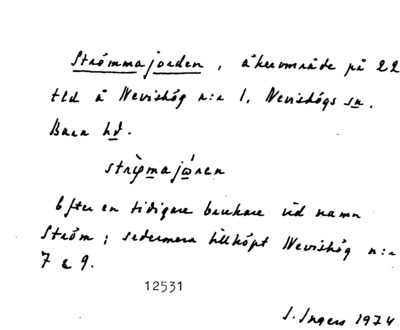 Strömmajorden, åkerområde på 22
tld å Nevishög n:r 1, Nevishögs sn.
Bara hd.
Efter en tidigare brukare vid namn
Ström; sedermera tillköpt Nevishög n:r
7 & 9.
12531
I. Ingers 1974.